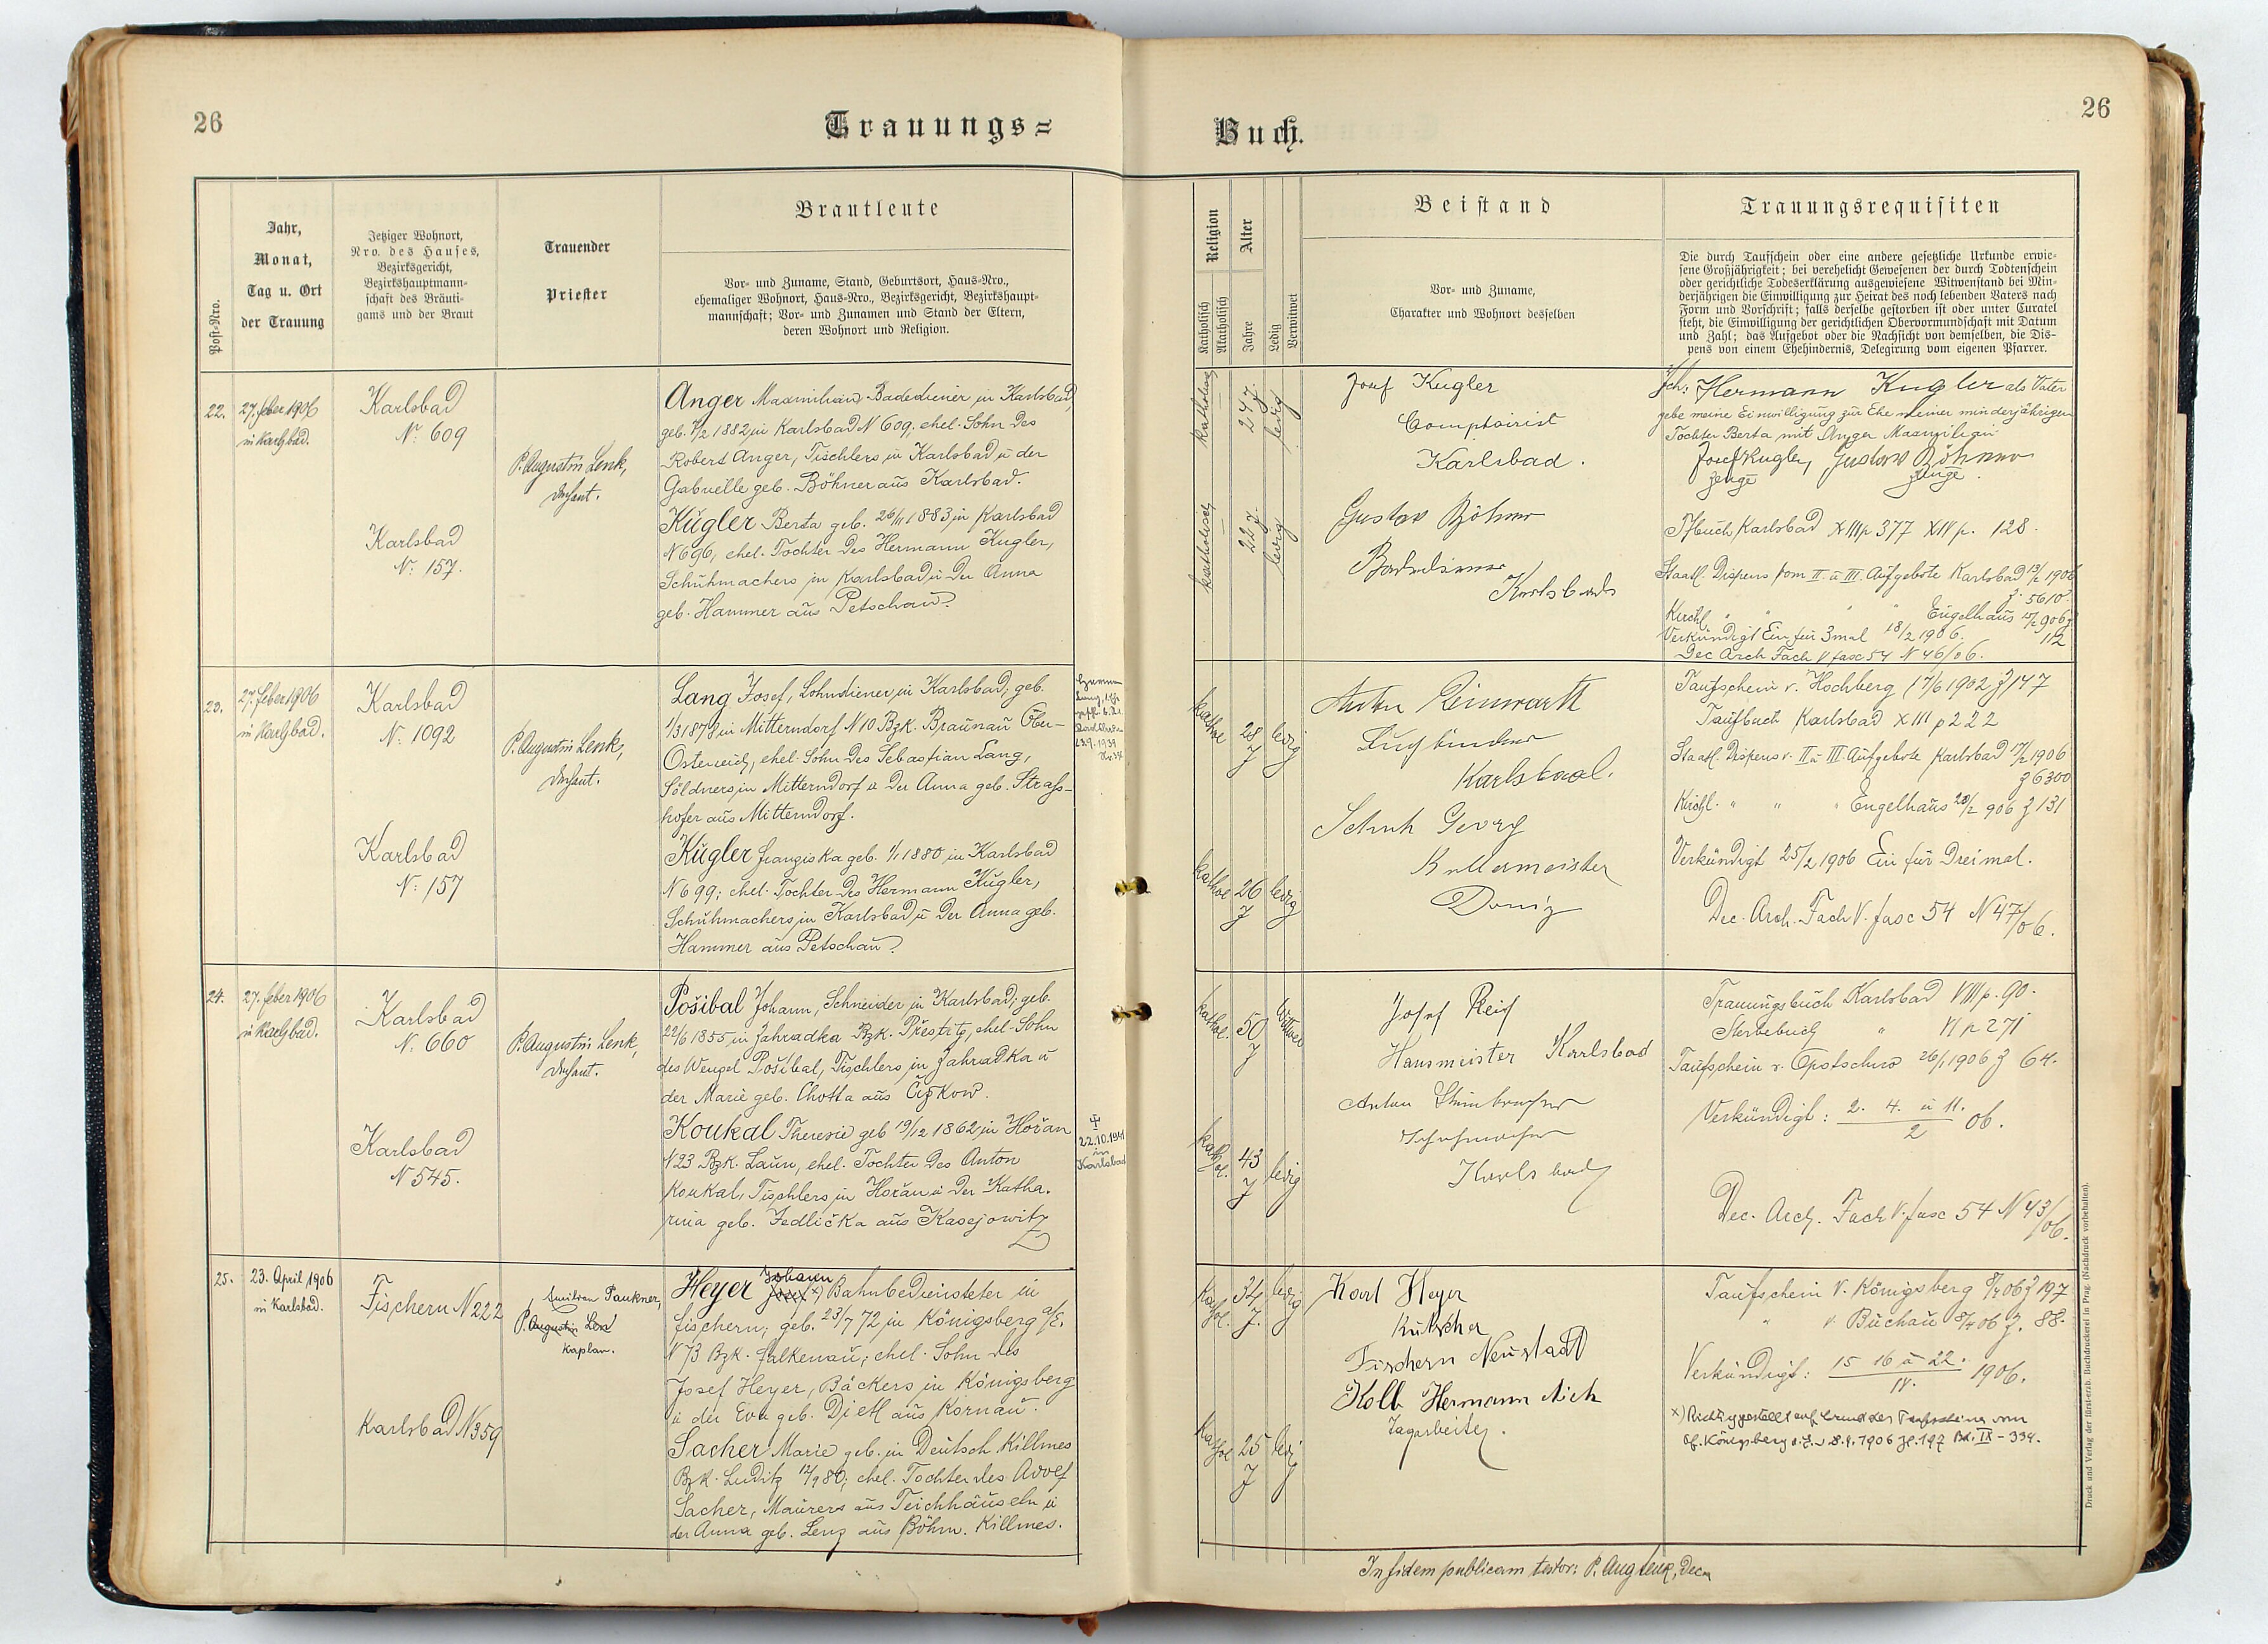 26
Trauungs=
Post-Nro.
Jahr,
Monat,
Tag u. Ort
der Trauung
Jetziger Wohnort,
Nro. des Hauses,
Bezirksgericht,
Bezirkshauptmann-
schaft des Bräuti-
gams und der Braut
Trauender
Priester
Brautleute
Vor- und Zuname, Stand, Geburtsort, Haus-Nro.,
ehemaliger Wohnort, Haus-Nro., Bezirksgericht, Bezirkshaupt-
mannschaft; Vor- und Zunamen und Stand der Eltern,
deren Wohnort und Religion.
22.
27. feber 1906
in Karlsbad.
Karlsbad
N: 609
Karlsbad
N: 157.
P. Augustin Lenk,
Dechant.
Anger Maximilian Badediener in Karlsbad,
geb. /2 1882 in Karlsbad N 609; ehel. Sohn des
Robert Anger, Tischlers in Karlsbad u der
Gabrielle geb. Böhner aus Karlsbad.
Kugler Berta geb. 26/11 1883 in Karlsbad
N 696, ehel. Tochter des Hermann Kugler,
Schuhmachers in Karlsbad u der Anna
geb. Hammer aus Petschau.
23.
27. feber 1906
in Karlsbad.
Karlsbad
N: 1092
Karlsbad
N: 157
P. Augustin Lenk,
Dechant.
Lang Josef, Lohndiener in Karlsbad; geb.
1/3 1878 in Mitterndorf N 10 Bzk. Braunau Ober-
Österreich, ehel. Sohn des Sebastian Lang,
Söldners in Mitterndorf u der Anna geb. Strass-
hofer aus Mitterndorf.
Kugler Franziska geb. 1/1 1880 in Karlsbad
N 699; ehel. Tochter des Hermann Kugler,
Schuhmachers in Karlsbad u der Anna geb.
Hammer aus Petschau.
23.9.1939
24.
27. feber 1906
in Karlsbad.
Karlsbad
N: 660
Karlsbad
N 545.
P. Augustin Lenk,
Dechant.
Pošibal Johann, Schneider in Karlsbad; geb.
22/6 1855 in Zahradka Bzk. Přestitz, ehel. Sohn
des Wenzel Pošibal, Tischlers in Zahradka u
der Marie geb. Chotta aus Čižkow.
Koukal Theresie geb 19/12 1862 in Hořan
N 23 Bzk. Laun, ehel. Tochter des Anton
Koukal, Tischlers in Hořan u der Katha-
rina geb. Jedlička aus Kasejowitz
22.10.1941
in
Karlsbad
25.
23. April 1906
in Karlsbad.
Fischern N 222
Karlsbad N 359
Aemilian Paukner,
P. Augustin Lenk
Kaplan.
Johann
Heyer Josef x) Bahnbediensteter in
fischern; geb. 23/7 72 in Königsberg a/E.
N 73 Bzk. Falkenau; ehel. Sohn des
Josef Heyer, Bäckers in Königsberg
u der Eva geb. Dietl aus Kornau.
Sacher Marie geb. in Deutsch Killmes
Bzk. Luditz 12/9 80; ehel. Tochter des Adolf
Sacher, Maurers aus Teichhäuseln u
der Anna geb. Lenz aus Böhm. Killmes.
Buch.
26
Religion
Katholisch
Akatholisch
Alter
Jahre
Ledig
Verwitwet
Beistand
Vor- und Zuname,
Charakter und Wohnort desselben
Trauungsrequisiten
Die durch Taufschein oder eine andere gesetzliche Urkunde erwie-
sene Großjährigkeit; bei verehelicht Gewesenen der durch Todtenschein
oder gerichtliche Todeserklärung ausgewiesene Witwenstand bei Min-
derjährigen die Einwilligung zur Heirat des noch lebenden Vaters nach
Form und Vorschrift; falls derselbe gestorben ist oder unter Curatel
steht, die Einwilligung der gerichtlichen Obervormundschaft mit Datum
und Zahl; das Aufgebot oder die Nachsicht von demselben, die Dis-
pens von einem Ehehindernis, Delegirung vom eigenen Pfarrer.
katholisch
24 J.
ledig
katholisch
22 J.
ledig
Josef Kugler
Comptoirist
Karlsbad.
Gustav Böhner
Badediener
Karlsbad
Ich: Hermann Kugler als Vater
gebe meine Einwilligung zur Ehe meiner minderjährigen
Tochter Berta mit Anger Maximilian
Josef Kugler, Gustav Böhner
Zeuge Zeuge.
Tfbuch Karlsbad XIII p 377 XIV p. 128.
Staatl. Dispens vom II. u III. Aufgebote Karlsbad 13/2 1906
Z. 5610.
Kirchl. " " " Engelhaus 15/2 906 Z
112
Verkündigt Ein für 3mal 18/2 1906.
Dec Arch Fach V fasc 54 N 46/06.
kathol
28 J
ledig
kathol
26 J
ledig
Anton Reinwarth
Karlsbad.
Schuh Georg
Donitz
Taufschein v. Hochberg 17/6 1902 Z 147
Taufbuch Karlsbad XIII p 222
Staatl. Dispens v. II u III Aufgebote Karlsbad 17/2 1906
Z 6300
Kirchl. " " " Engelhaus 20/2 906 Z 131
Verkündigt 25/2 1906 Ein für Dreimal.
Dec. Arch. Fach V. fasc 54 N 47/06.
kathol.
50 J
Witwer
kathol.
43 J
ledig
Josef Reif
Hausmeister Karlsbad
Anton Steinbacher
Schuhmacher
Karlsbad
Trauungsbuch Karlsbad VIII p. 90.
Sterbebuch " VI p 271
Taufschein v. Opotschno 26/1 1906 Z 64.
Verkündigt: 2. 4. u 11. / 2 06.
Dec. Arch. Fach V. fasc 54 N 43/06.
Kathol.
34 J.
ledig
Kathol
25 J
ledig
Karl Heyer
Kutscher
Fischern Neustadt
Kolb Hermann
Tagarbeiter.
Taufschein v. Königsberg 8/4 06 Z 197
" v. Buchau 8/4 06 Z. 88.
Verkündigt: 15 16 u 22. / IV. 1906.
x) Richtiggestellt auf Grund des Taufscheines vom
Pf. Königsberg a. E. v. 8.4.1906 Zl. 197 Bd. IX - 334.
In fidem publicam testor: P. Aug Lenk, Decan
Druck und Verlag der fürst-erzb. Buchdruckerei in Prag. (Nachdruck vorbehalten).